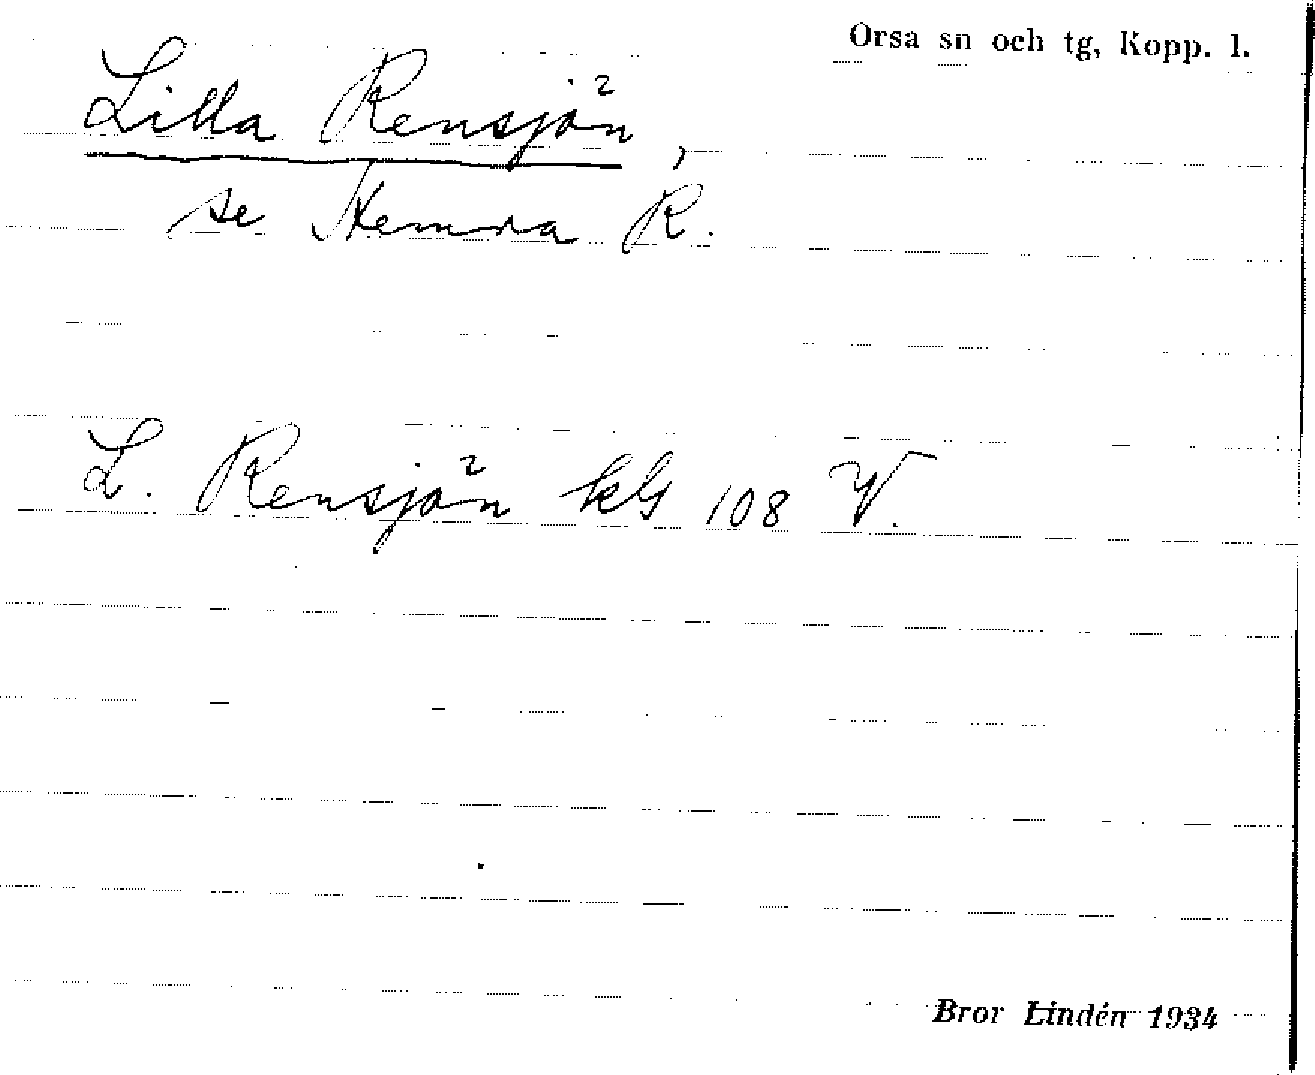 Orsa sn och tg, Kopp. l.
Lilla Rensjön,
se Hemra R.
L. Rensjön kbl 108 V.
Bror Lindén 1934